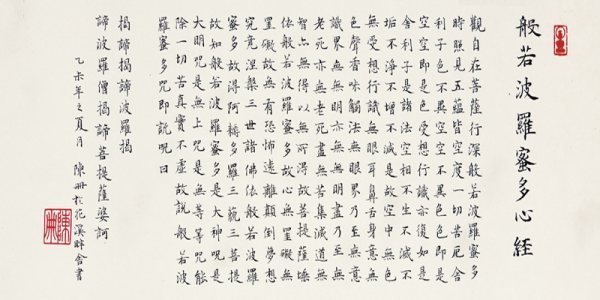 般若波羅蜜多心経
觀自在菩薩行深般若波羅蜜多
時照見五蘊皆空度一切苦厄舍
利子色不異空空不異色色即是
空空即是色受想行識亦復如是
舍利子是諸法空相不生不滅不
垢不淨不增不減是故空中無色
無受想行識無眼耳鼻舌身意無
色聲香味觸法無眼界乃至無意
識界無無明亦無無明盡乃至無
老死亦無老死盡無苦集滅道無
智亦無得以無所得故菩提薩埵
依般若波羅蜜多故心無罣礙無
罣礙故無有恐怖遠離顛倒夢想
究竟涅槃三世諸佛依般若波羅
蜜多故得阿耨多羅三藐三菩提
故知般若波羅蜜多是大神咒是
大明咒是無上咒是無等等咒能
除一切苦真實不虛故說般若波
羅蜜多咒即說咒曰
揭諦揭諦波羅揭
諦波羅僧揭諦菩提薩婆訶
乙未年之夏月 陳冊於花溪畔舍書